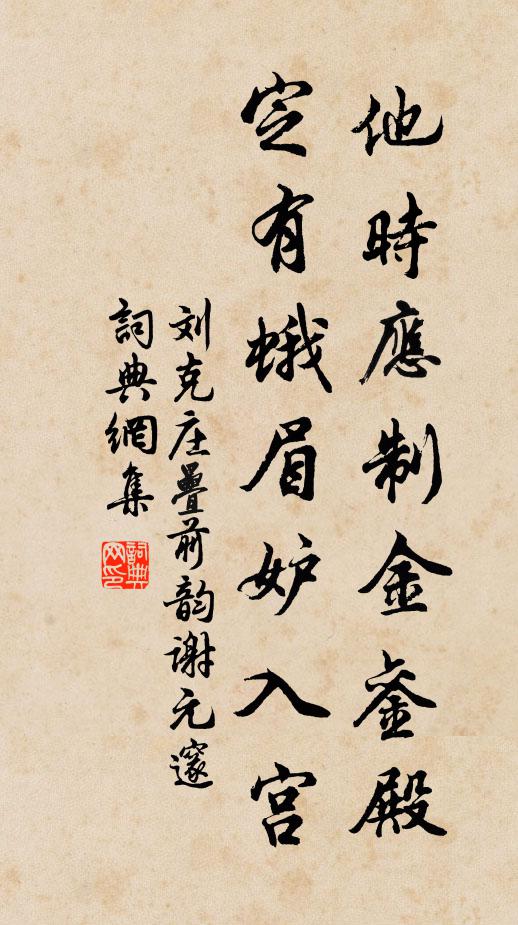 他時應制金銮殿
定有蛾眉妒入宫
刘克庄疊前韵谢元邃
詞典網集
詞典网印